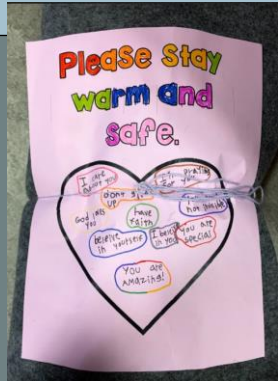 Please Stay
warm and
safe.
I care
about you
praying
for you
don't give
up
God loves
you
have
faith
not
believe
in yourself
I believe
in you
you are
special
You are
Amazing!